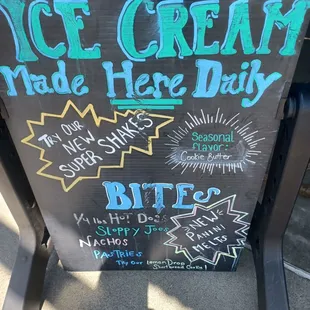 ICE CREAM
Made Here Daily
TRY OUR
NEW
SUPER SHAKES
Seasonal
flavor:
Cookie Butter
BITES
1/4 lbs Hot Dogs
Sloppy Joes
Nachos
Pastries
NEW
PANINI
MELTS
Try Our Lemon Drop